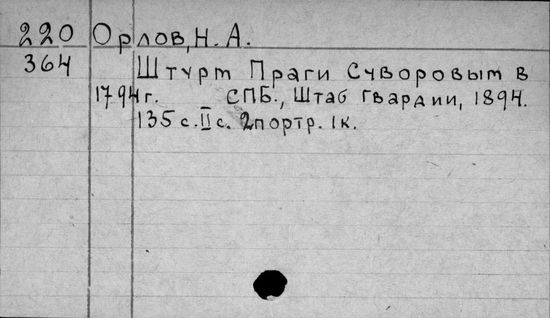 220 Орлов, Н. А.
364 Штурм Праги Суворовым в
1794 г. СПБ., Штаб Гвардии, 1894.
135 с. II с. 2 портр. 1к.